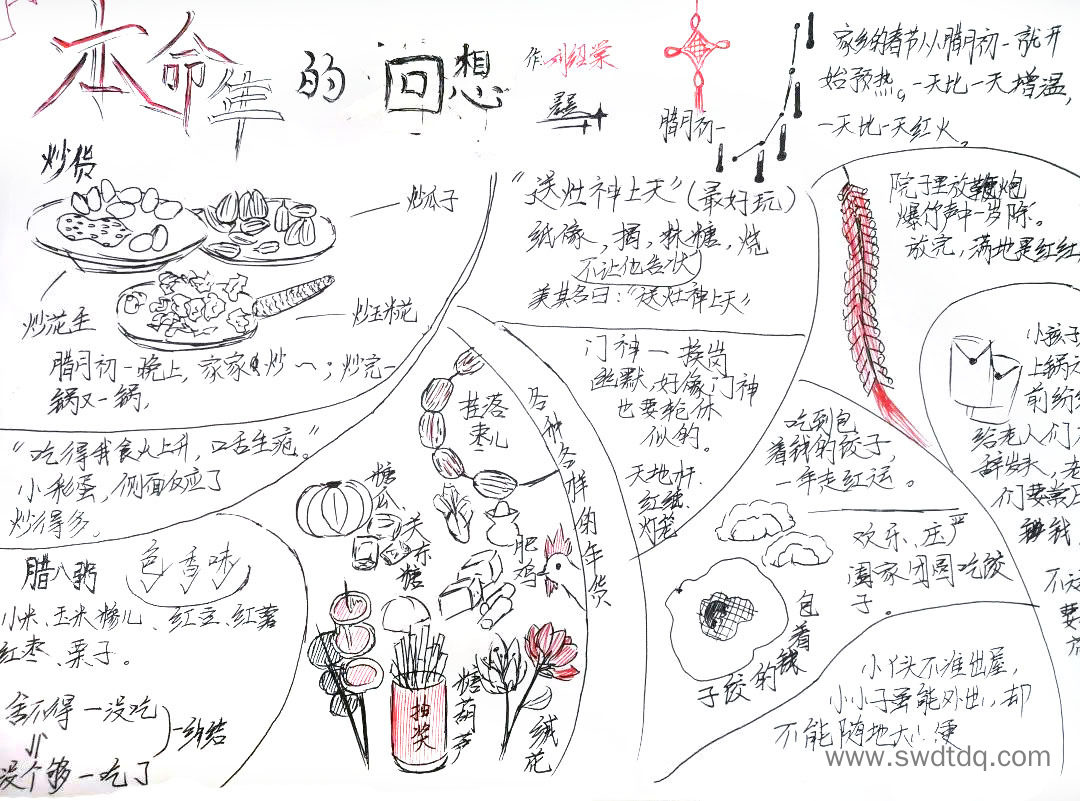 本命年的回想
作:刘绍棠
腊月初一
家乡的春节从腊月初一就开
始预热。一天比一天增温,
一天比一天红火。
炒货
炒瓜子
炒花生
炒玉米花
腊月初一晚上,家家炒~;炒完一
锅又一锅,
"吃得我食火上升,口舌生疮。"
小彩蛋,侧面反应了
炒得多,
"送灶神上天"(最好玩)
纸像,摘,糖,烧
不让他告状
美其名曰:"送灶神上天"
院子里放鞭炮
爆竹声中一岁除。
放完,满地是红红
门神一换岗
幽默,好像门神
也要轮休
似的。
天地杆.
红纸.
灯笼
各种各样的年货
挂落
枣儿
糖
瓜、
关
东
糖
肥
鸡
糖葫芦
抽奖
绒花
吃到包
着钱的饺子,
一年走红运。
欢乐、庄严
阖家团圆吃饺
子。
包着钱的饺子
小孩子
上锅
前纷纷
给老人们
辞岁,老
们要
钱
不
要
腊八粥
色香味
小米、玉米糁儿、红豆、红薯
红枣、栗子。
舍不得一没吃
没个够一吃了
纠结
小丫头不准出屋,
小小子虽能外出,却
不能随地大小便
www.swdtdq.com